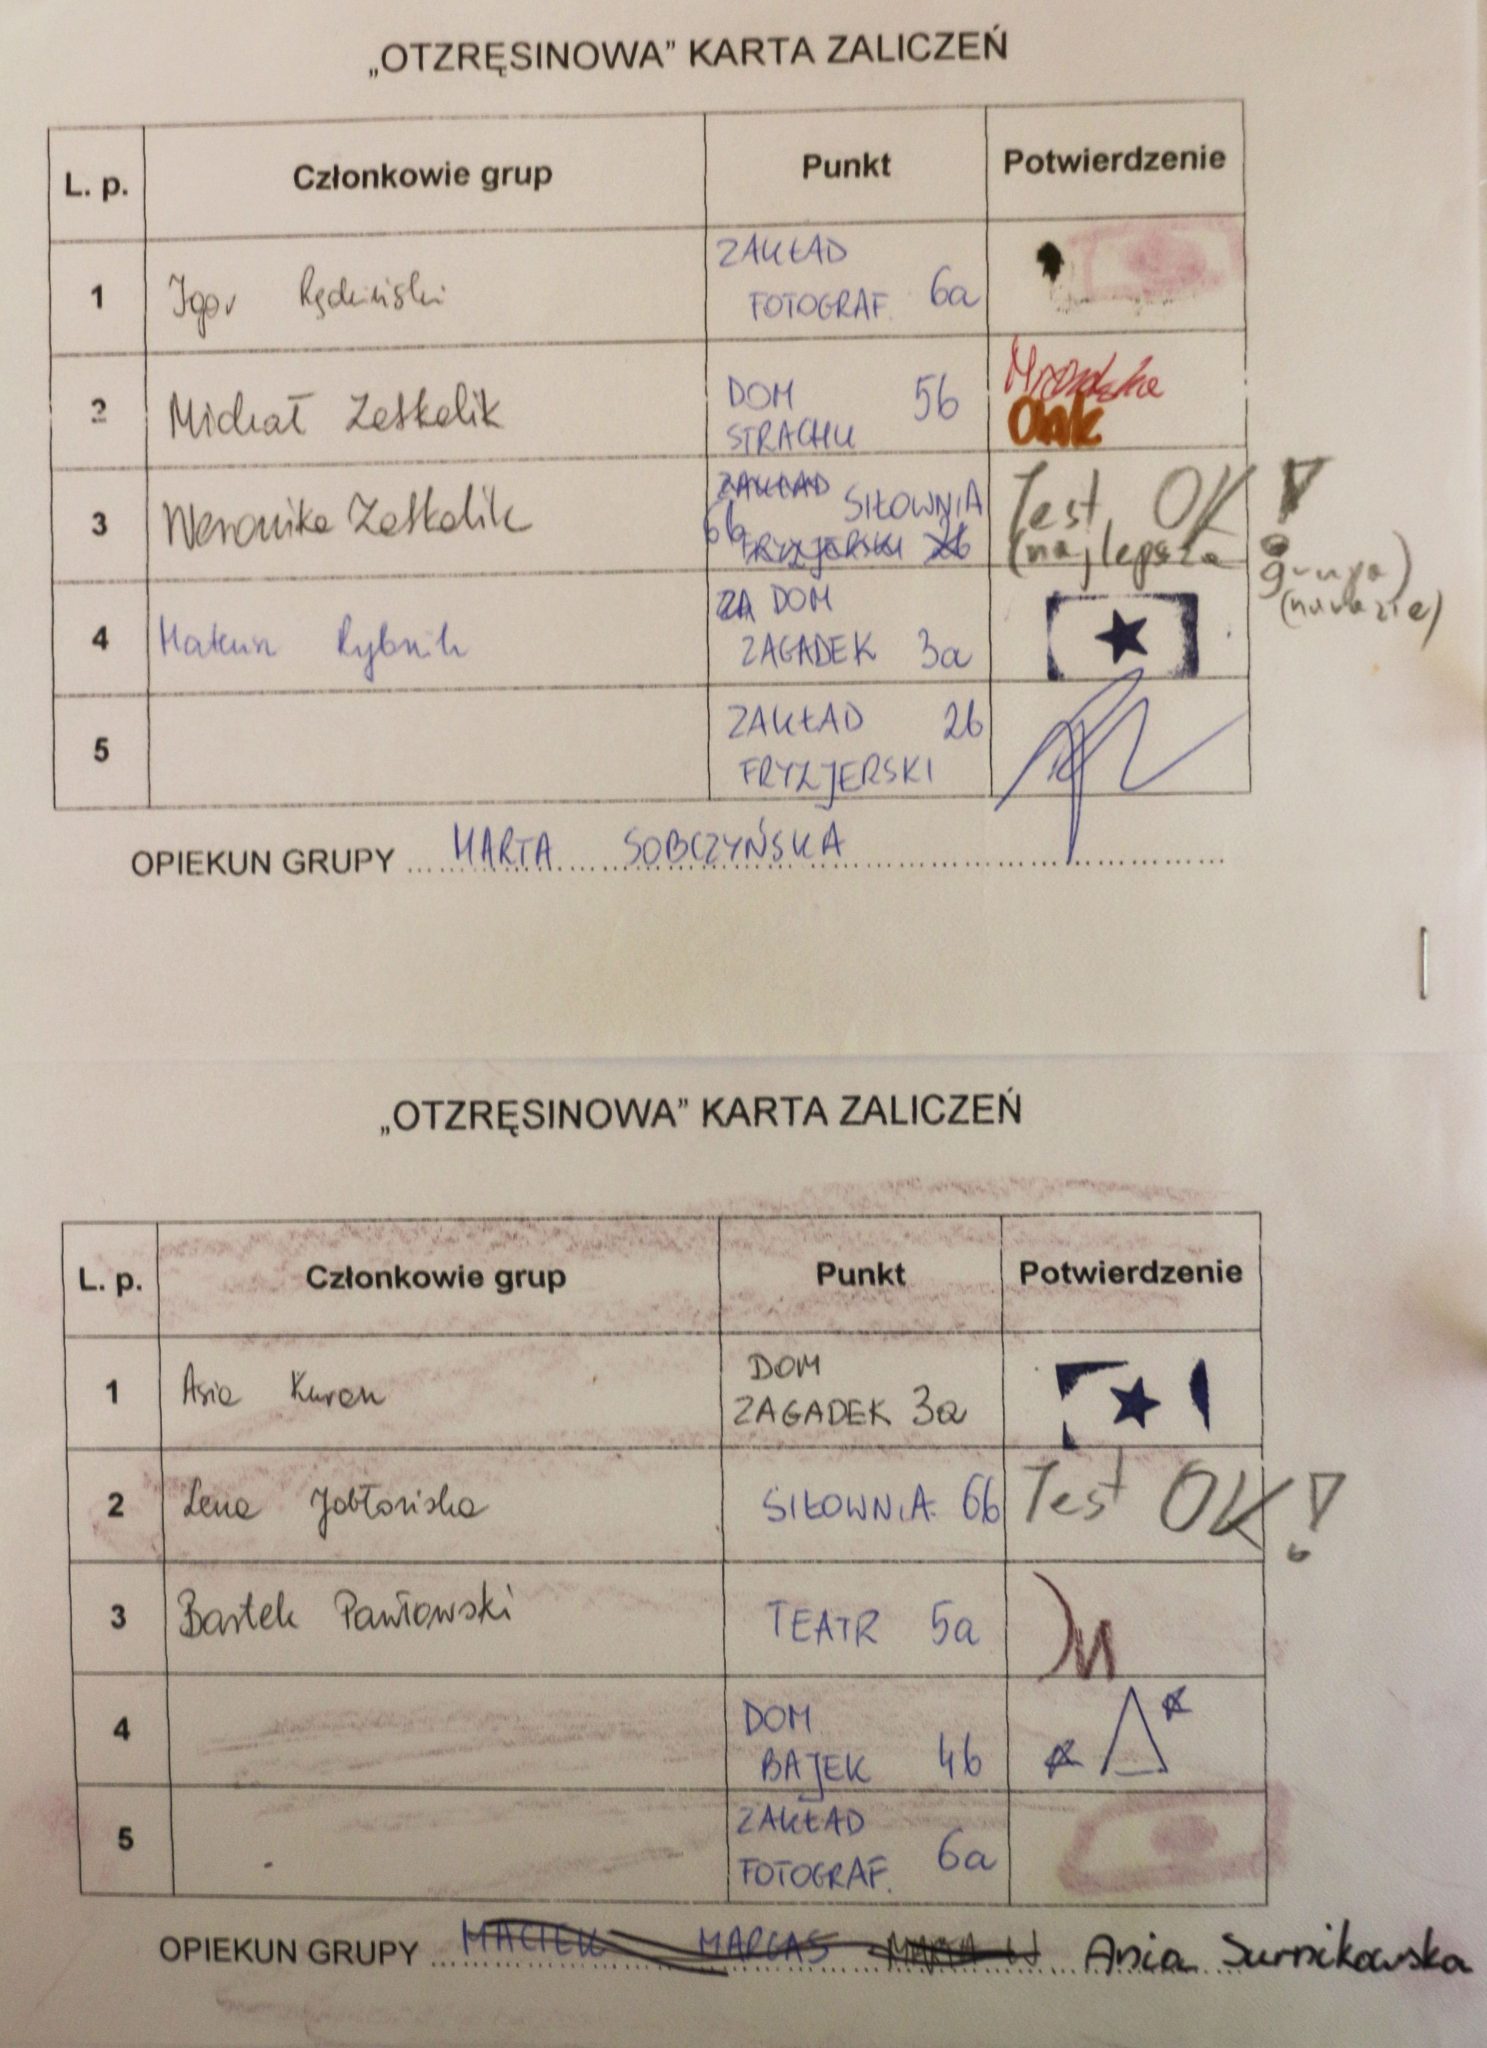 „OTZRĘSINOWA” KARTA ZALICZEŃ
L. p. Członkowie grup Punkt Potwierdzenie
1 Igor ZAKŁAD
FOTOGRAF. 6a
2 Michał Zeskalik DOM 5b
STRACHU
OK
3 Weronika Zeskalik ZAKŁAD SIŁOWNIA
6b FRYZJERSKI 2b
Test OK!
(najlepsza grupa)
(na razie)
4 Mateusz Rybnik ZA DOM
ZAGADEK 3a
5 ZAKŁAD 2b
FRYZJERSKI
OPIEKUN GRUPY MARTA SOBCZYŃSKA
„OTZRĘSINOWA” KARTA ZALICZEŃ
L. p. Członkowie grup Punkt Potwierdzenie
1 Asia Kuran DOM
ZAGADEK 3a
2 Lena Jabłońska SIŁOWNIA 6b Test OK!
3 Bartek Pawłowski TEATR 5a
4 DOM
BAJEK 4b
5 ZAKŁAD
FOTOGRAF. 6a
OPIEKUN GRUPY MACIEK MARGAS Ania Surnikowska